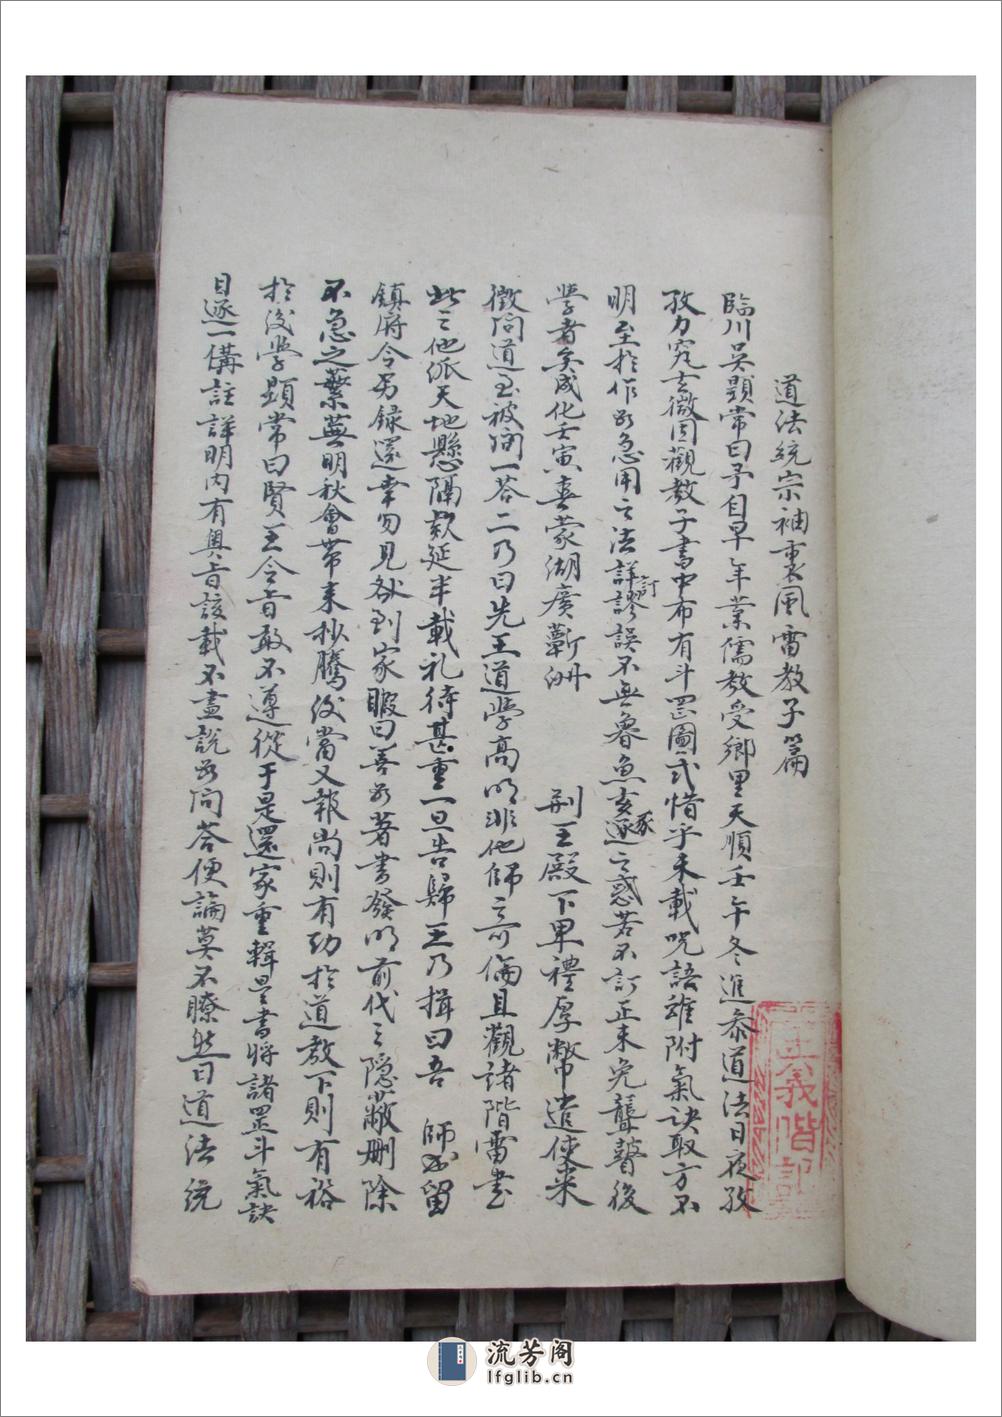 道法統宗袖裏風雷教子篇
臨川吴顯常曰予自早年業儒教受鄉里天順壬午冬進叅道法日夜孜
孜力究玄微因觀教子書中布有斗罡圖式惜乎未載咒語雖附氣訣取方不
明至於作用急用之法詳訂謬誤不無魯魚亥豕之惑若不訂正未免聾瞽後
學者矣成化壬寅喜蒙湖廣蘄州 荆王殿下卑禮厚幣遣使來
徵問道至被問一荅二乃曰先王道學高明非他師之可倫且觀諸階雷書
此之他派天地懸隔款延半載礼待甚重一旦告歸王乃揖曰吾 師必留
鎮府今另録還幸勿見却到家暇日善为著書發明前代之隐蔽删除
不急之繁蕪明秋會帶来抄騰後當又報尚則有功於道教下則有裕
於後學顯常曰賢王令旨敢不遵從于是還家重輯是書將諸罡斗氣訣
目逐一備註詳明内有奥旨該載不盡說为問荅便論莫不瞭然曰道法統
流芳阁
lfglib.cn